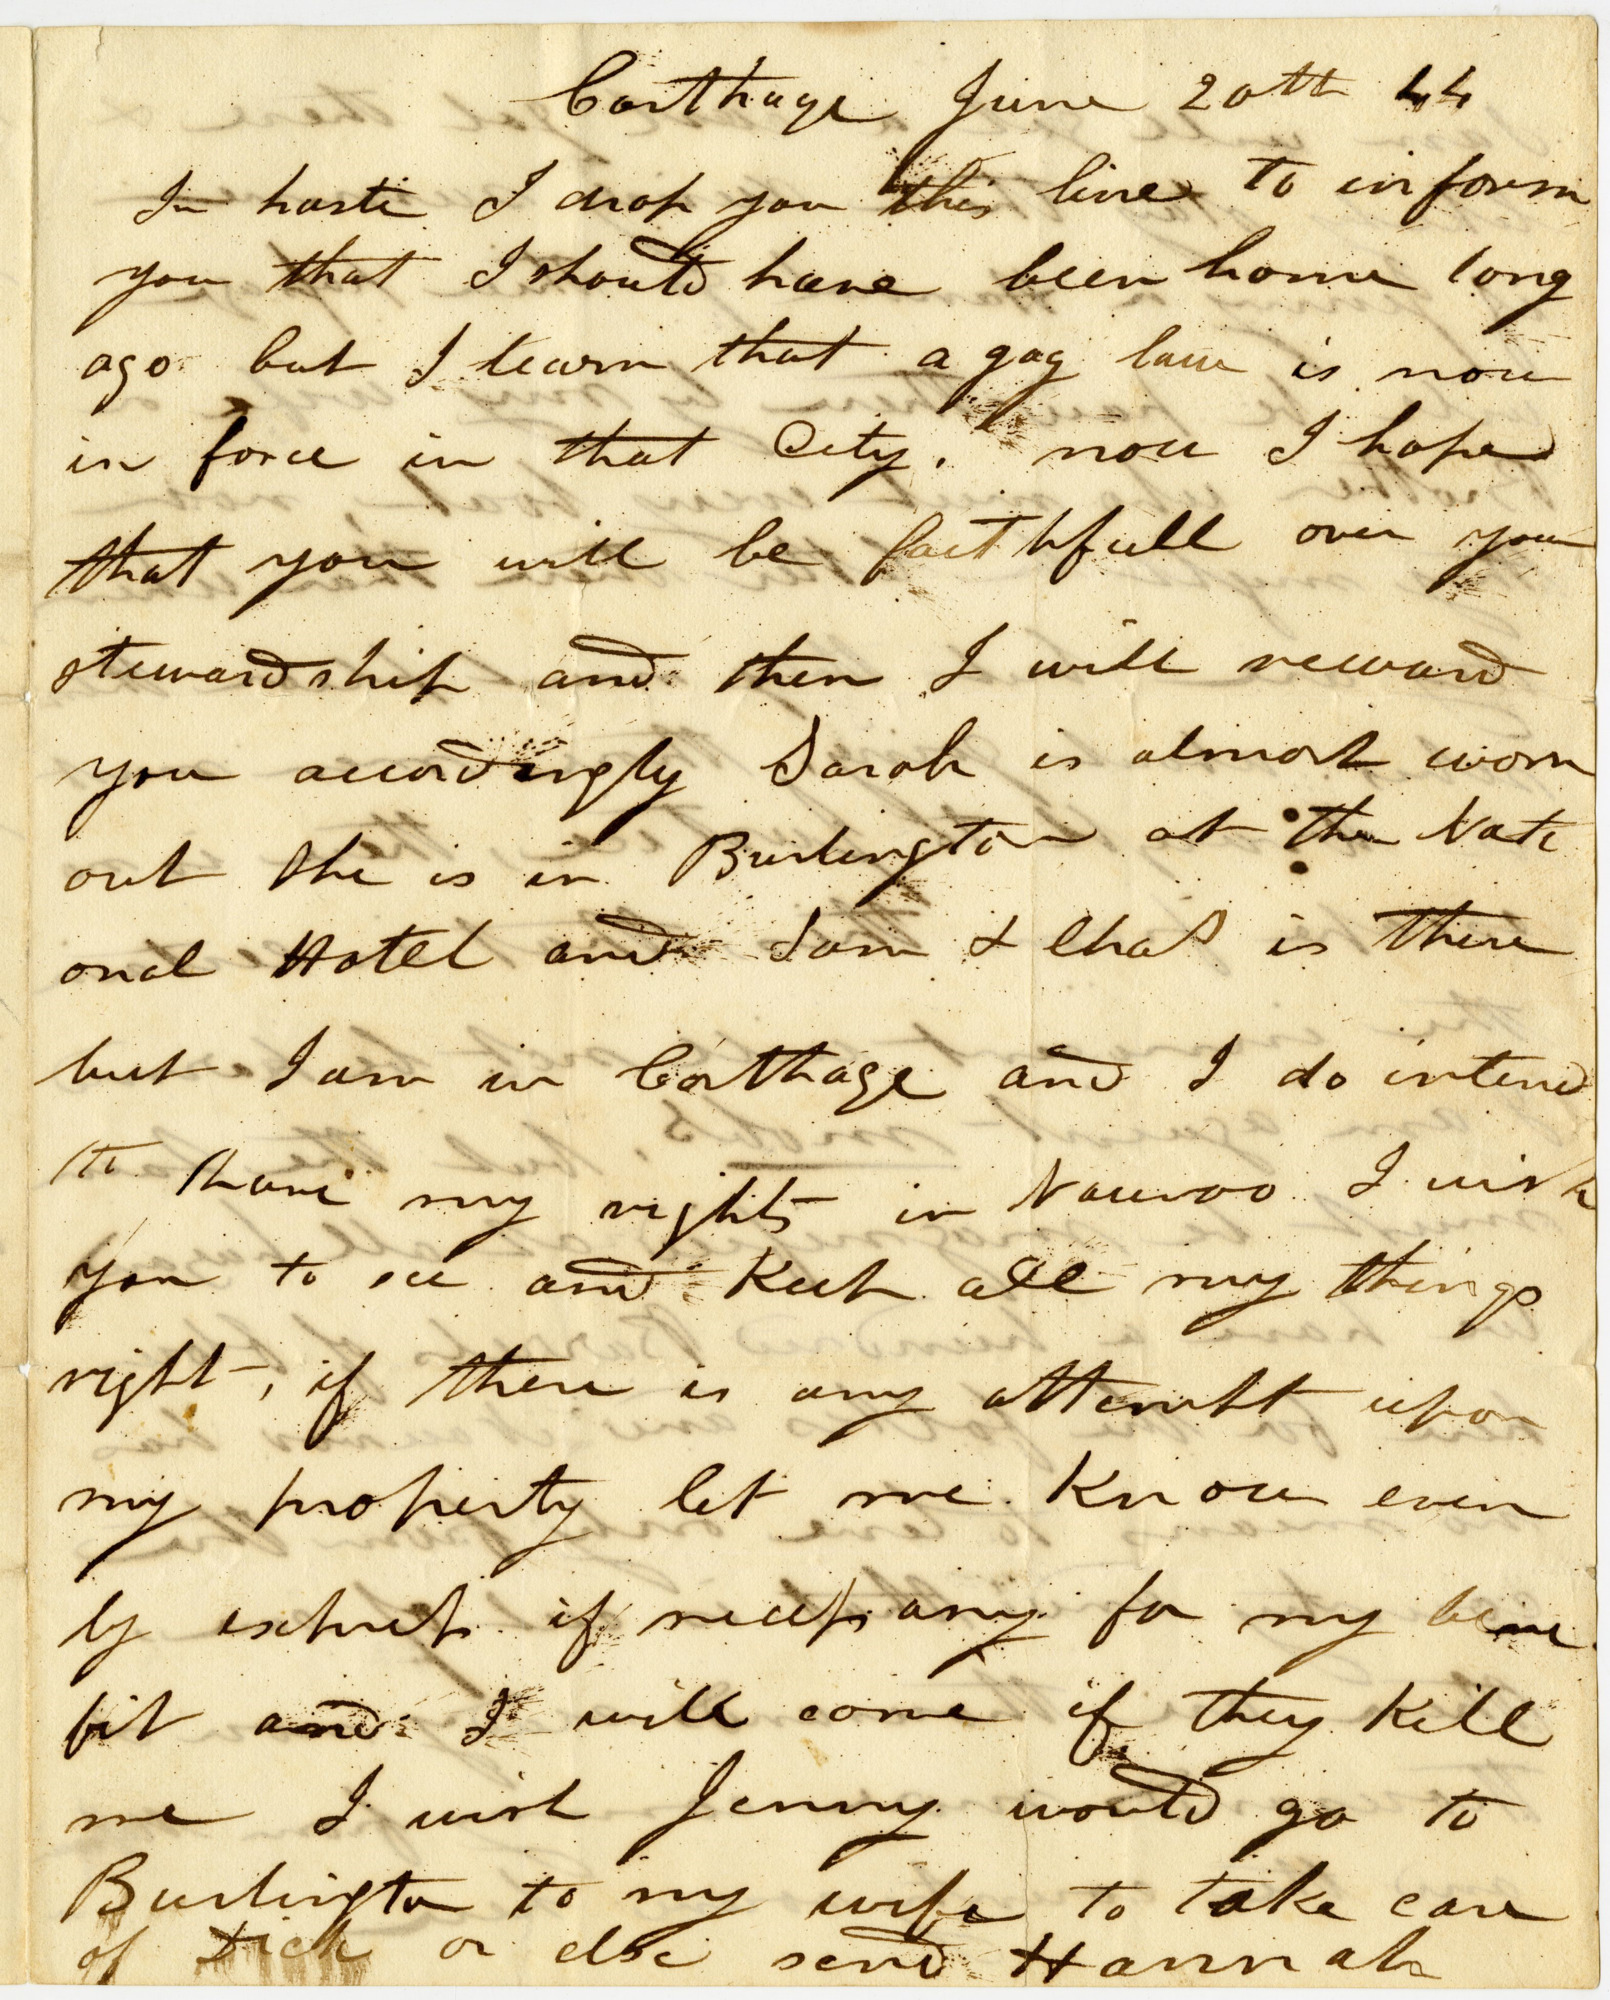 Carthage June 20th 44
In haste I drop you this line to inform
you that I should have been home long
ago but I learn that a gag law is now
in force in that City. now I hope
that you will be faithfull over your
stewardship and then I will reward
you accordingly Sarah is almost worn
out She is in Burlington at the Nati
onal Hotel and Sam & Chas is there
but I am in Carthage and I do intend
to have my rights in Nauvoo I wish
you to see and Keep all my things
right, if there is any attempt upon
my property let me Know even
by express if necessary for my bene
fit and I will come if they Kill
me I wish Jenny would go to
Burlington to my wife to take care
of Dick or else send Hannah